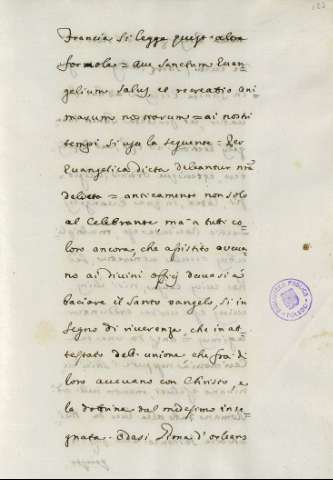 Francia si legge quest altra
formola = Ave Sanctum Evan=
gelium salus, et recreatio Ani
marum nostrarum = ai nostri
tempi si usa la seguente = Per
Evangelica dicta deleantur nra
delicta = anticamente non solo
al Celebrante, ma à tutti co=
loro ancora, che assistito aveva
no ai divini officj davasi à
baciare il Santo Vangelo, sì in
segno di riverenza, che in at
testato dell unione che frà di
loro avevano con Christo, e
la dottrina dal medesimo inse
gnata. Odasi Giona d'Orleans